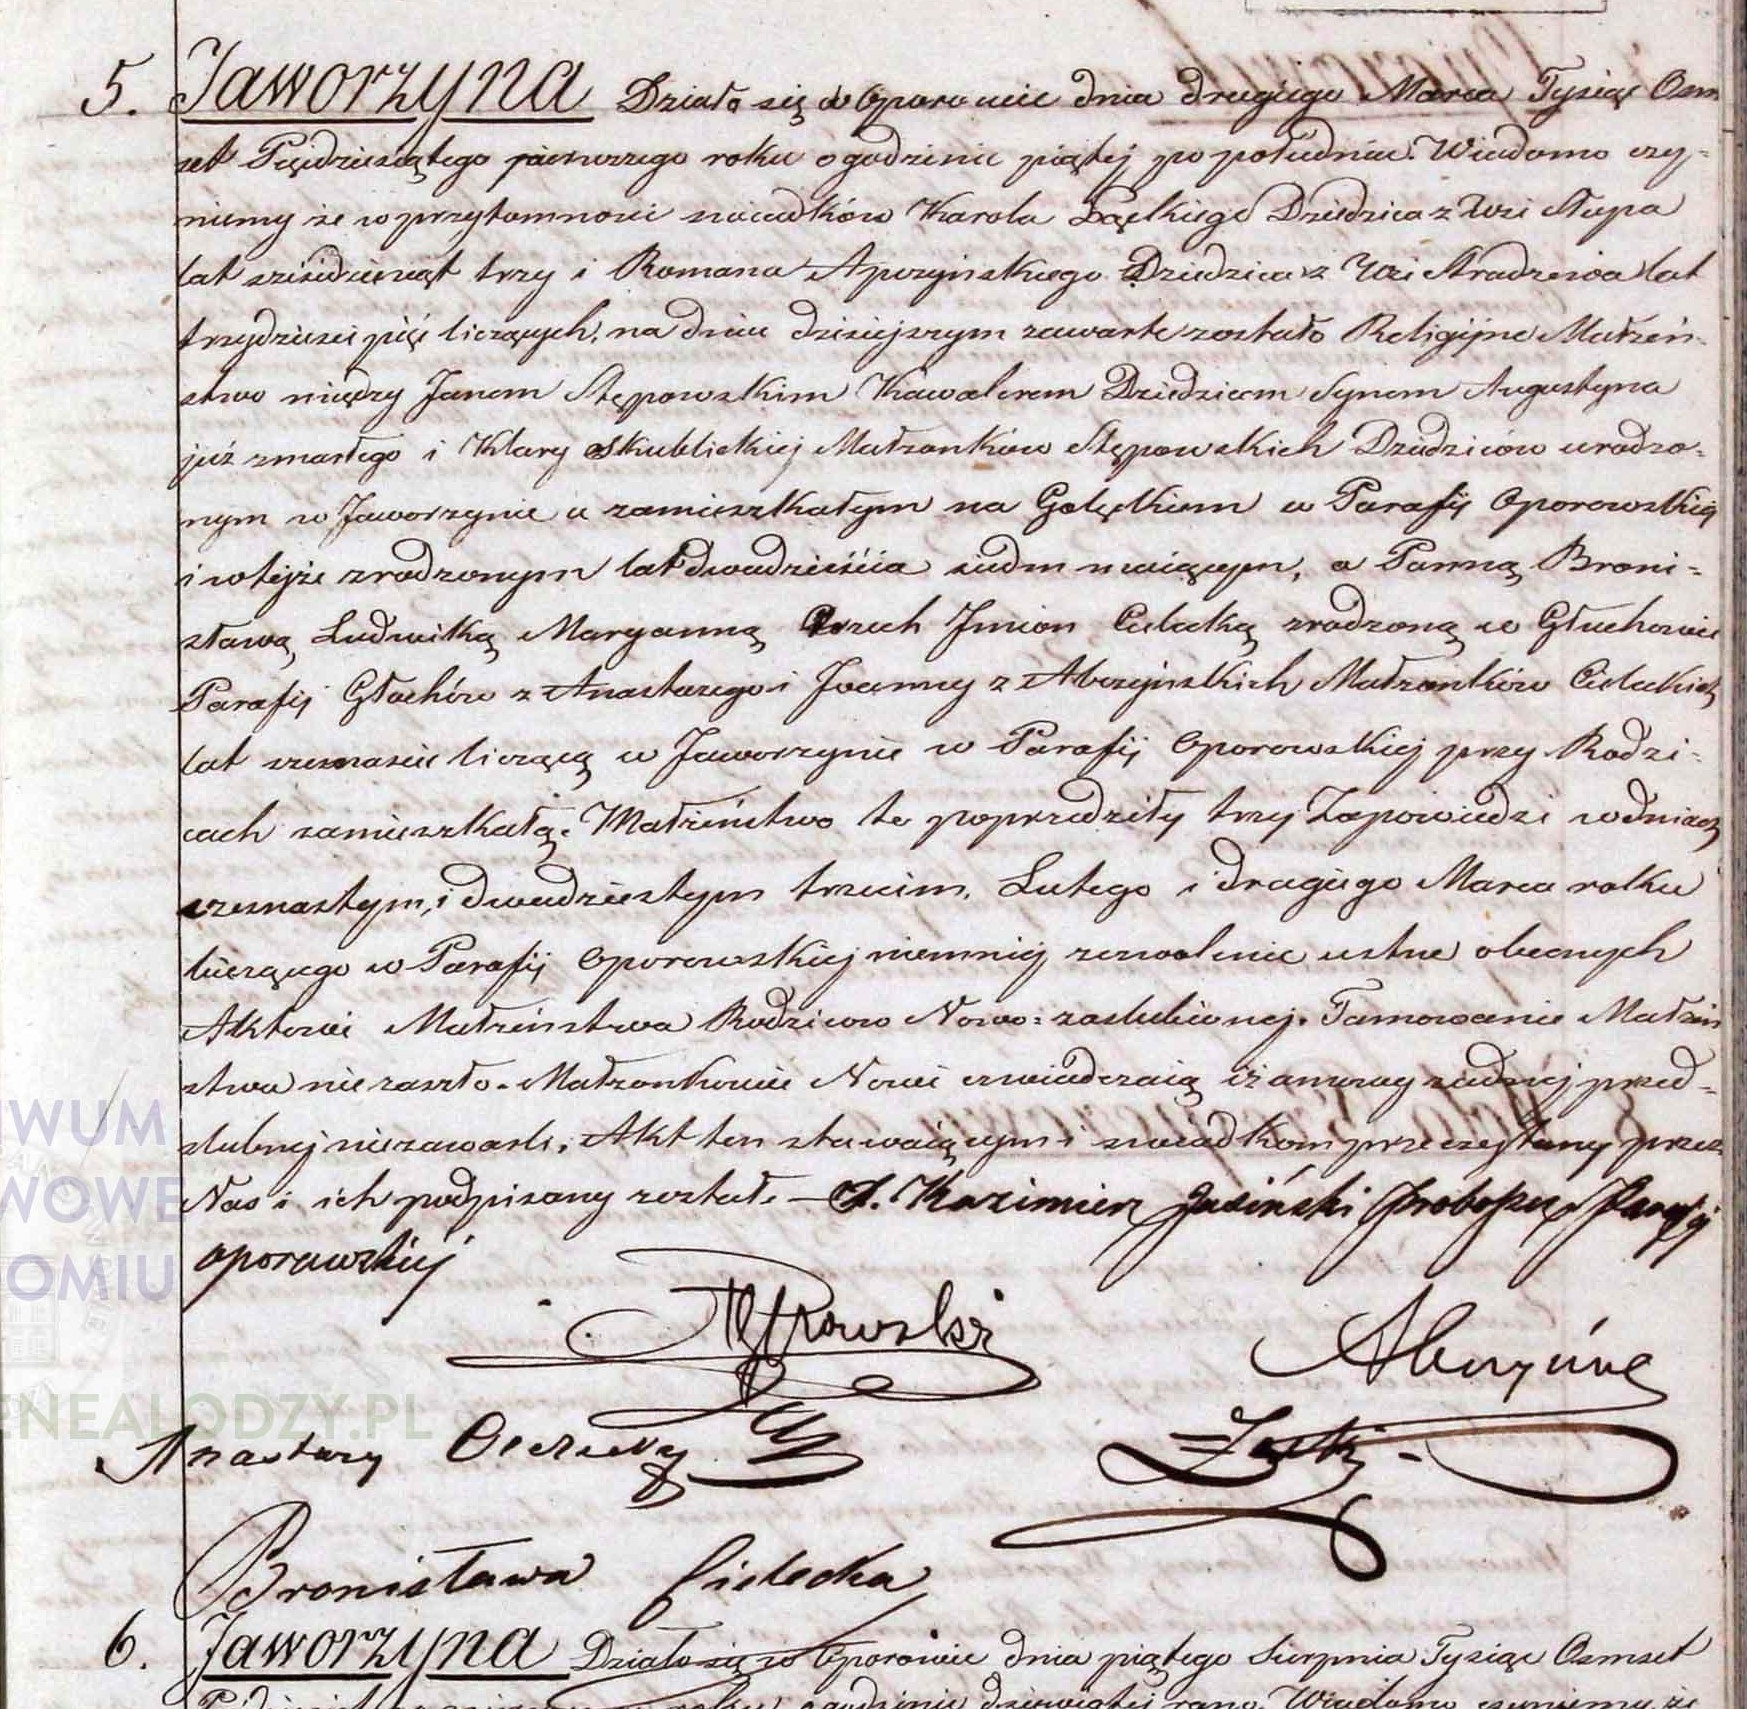 5. Jaworzyna Działo się w Oporowie dnia drugiego Marca Tysiąc Osm
set Pięćdziesiątego pierwszego roku o godzinie piątej po południu. Wiadomo czy-
niemy że w przytomności świadków Karola Dziedzica z Wsi Słupa
lat sześćdziesiąt trzy i Romana Dziedzica z Wsi Stradzewa lat
trzydzieści pięć liczących, na dniu dzisiejszym zawarte zostało Religijne Małżeń-
stwo między Janem Stępowskim Kawalerem Dziedzicem Synem Augustyna
już zmarłego i Klary Skublickiej Małżonków Stępowskich Dziedziców urodzo-
nym w Jaworzynie a zamieszkałym na Golędkiem w Parafij Oporowskiej
i w tejże zrodzonym lat dwadzieścia siedm maiącym, a Panną Broni-
sławą Ludwiką Maryanną trzech Jmion Cielecką zrodzoną w Głuchowie
Parafij Głuchów z Anastazego i Joanny z Małżonków Cieleckich
lat szesnaście liczącą w Jaworzynie w Parafij Oporowskiej przy Rodzi-
cach zamieszkałą. Małżeństwo te poprzedziły trzy Zapowiedzi w dniach
szesnastym, i dwudziestym trzecim, Lutego i drugiego Marca roku
bieżącego w Parafij Oporowskiej niemniej zezwolenie ustne obecnych
Aktowi Małżeństwa Rodziców Nowo-zaślubionej. Tamowanie Małżeń
stwa nie zaszło. Małżonkowie Nowi oświadczaią iż umowy żadnej przed-
ślubnej niezawarli, Akt ten stawaiącym i świadkom przeczytany przez
Nas i ich podpisany został. — X. Kazimierz Jasiński Proboszcz Parafij
Oporowskiej
Stępowski
Anastazy
Bronisława Cielecka
6. Jaworzyna Działo się w Oporowie dnia piątego Sierpnia Tysiąc Osmset
roku o godzinie dziewiątej rano. Wiadomo czyniemy, że
WUM
WOWE
OMIU
ENEALODZY.PL